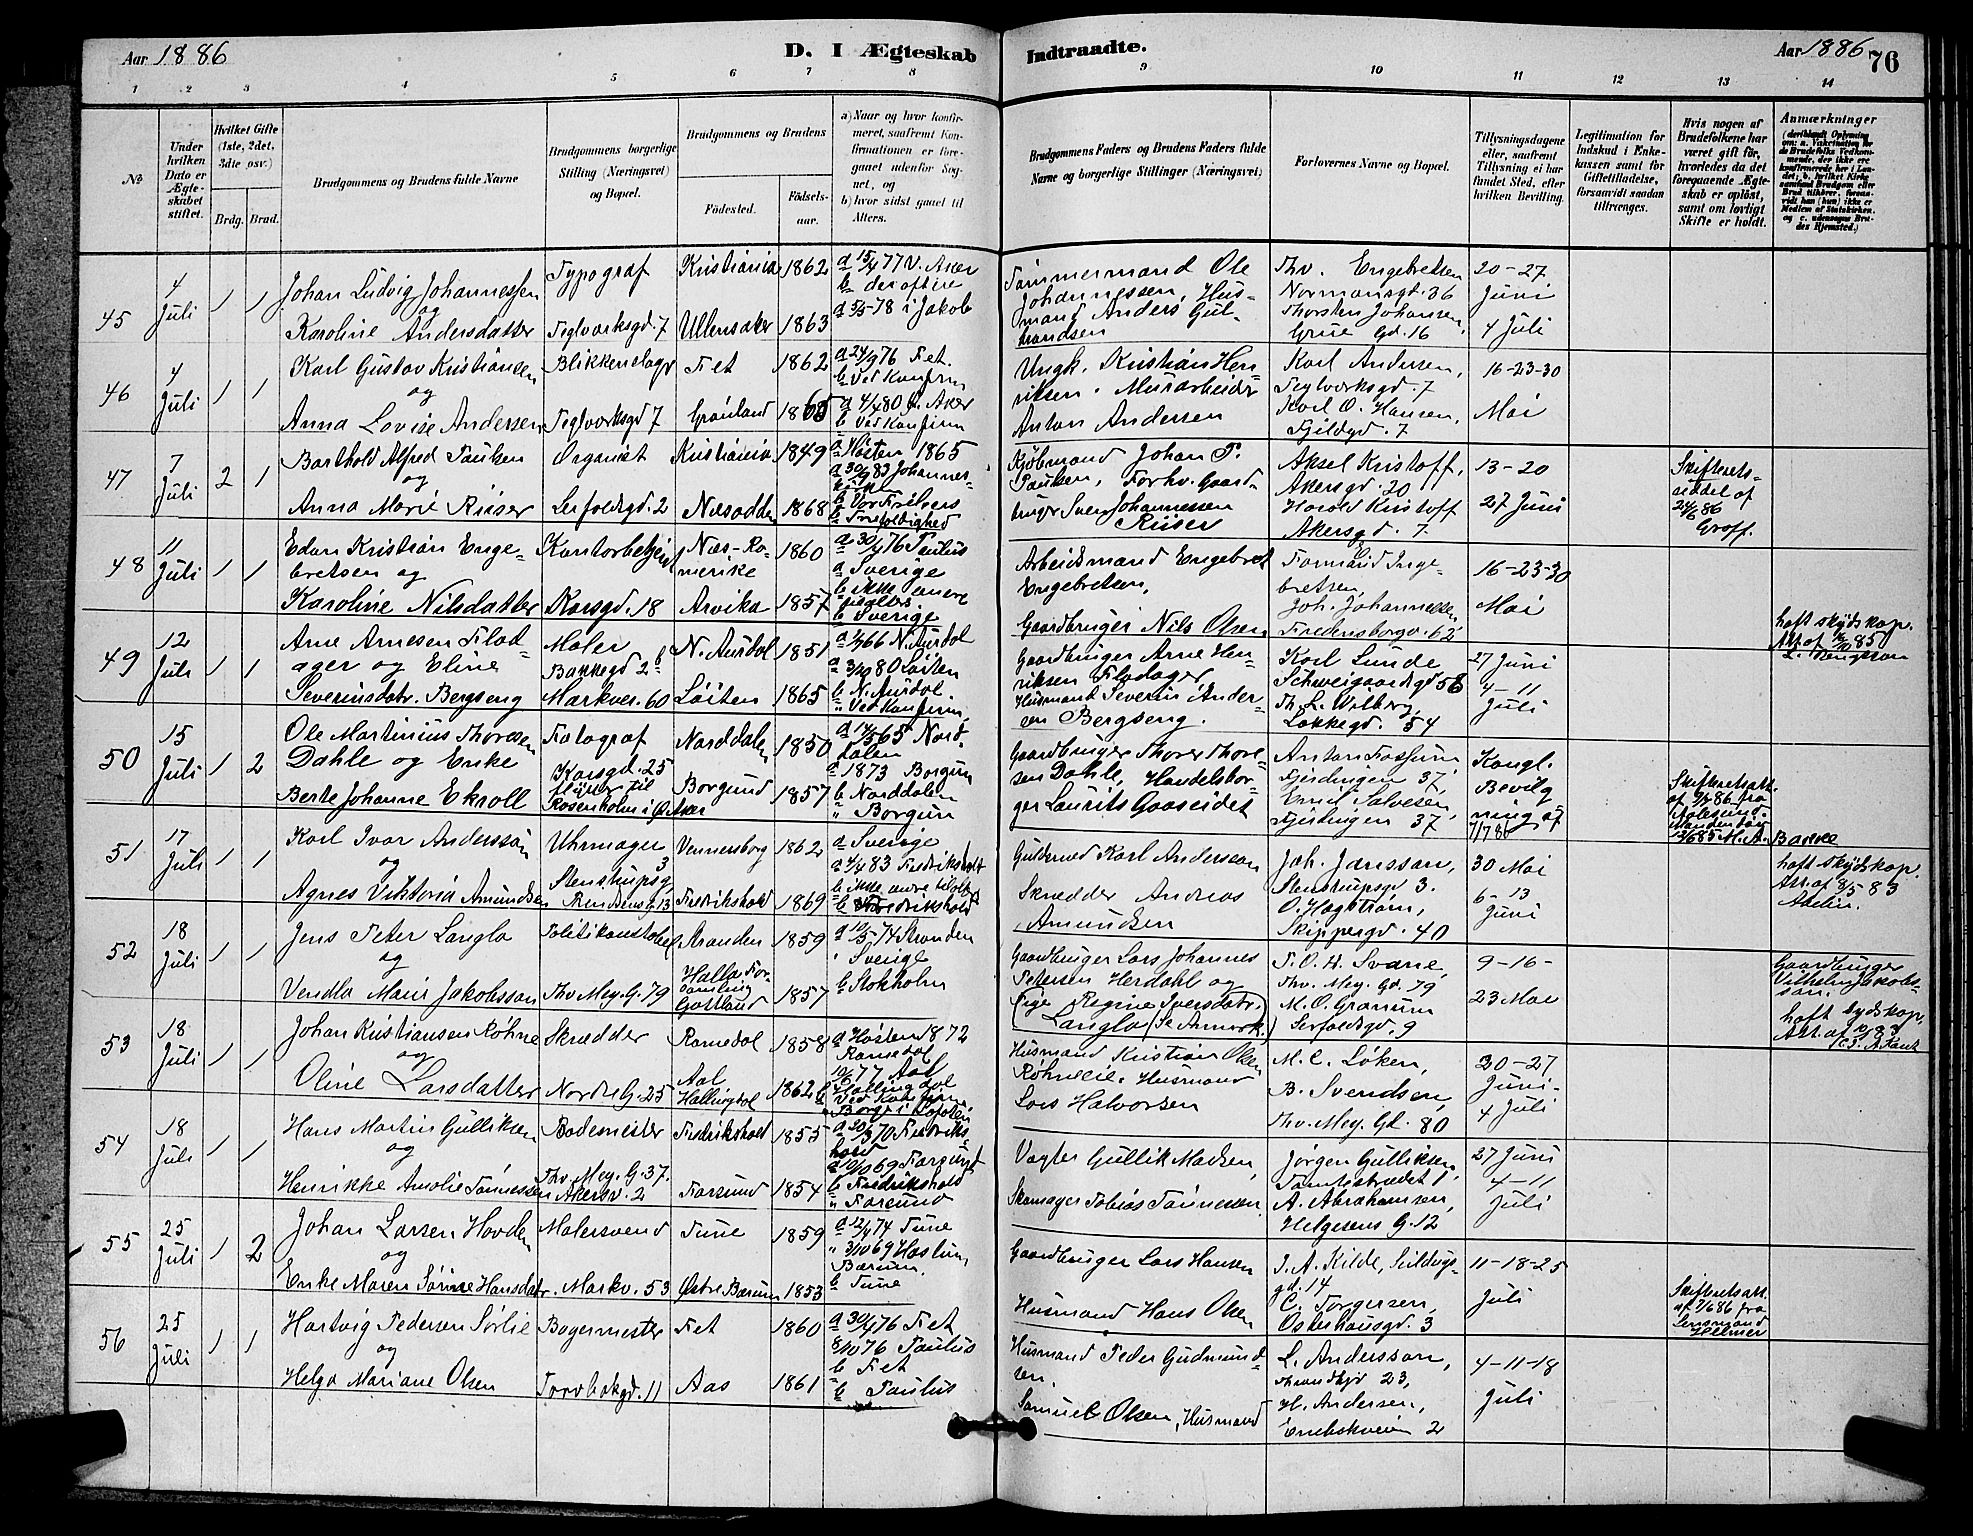 Aar 1886
D. I Ægteskab
Indtraadte.
Aar 1886
76
1 2 3 4 5 6 7 8
9 10 11 12 13 14
№
Under hvilken Dato er Ægteskabet stiftet.
Hvilket Gifte (1ste, 2det, 3die osv.)
Brdg. Brud.
Brudgommens og Brudens fulde Navne
Brudgommens borgerlige Stilling (Næringsvei) og Bopæl.
Brudgommens og Brudens
Fødested.
Fødselsaar.
a) Naar og hvor konfirmeret, saafremt Konfirmationen er foregaaet udenfor Sognet, og
b) hvor sidst gaaet til Alters.
Brudgommens Faders og Brudens Faders fulde Navne og borgerlige Stillinger (Næringsvei)
Forlovernes Navne og Bopæl.
Tillysningsdagene eller, saafremt Tillysning ei har fundet Sted, efter hvilken Bevilling.
Legitimation for Indskud i Enkekassen samt for Giftetilladelse, forsaavidt saadan tiltrænges.
Hvis nogen af Brudefolkene har været gift før, hvorledes da det foregaaende Ægteskab er opløst, samt om lovligt Skifte er holdt.
Anmærkninger
45
4 Juli
1 1
Johan Ludvig Johannessen
og
Karoline Andersdatter
Typograf
Teglverksgd. 7
Kristiania 1862
Ullensaker 1863
a 15/4 77 V. Aker
b der oftere
a 5/5-78 i Jakob
Tømmermand Ole
Johannessen, Husmand Anders Gulbrandsen
Thv. Engebretsen
Normansgd. 36
Thorsten Johansen,
Grüe Gd. 16
20-27
Juni
4 Juli
46
4 Juli
1 1
Karl Gustav Kristiansen
og
Anna Lovise Andersen
Blikkenslager
Teglverksgd 7
Fet 1862
Grønland 1865
a 24/9 76 Fet.
b Ved Konfirm
a 4/4 80 V. Aker
b Ved Konfirm
Ungk. Kristian Henriksen. Murarbeider
Anton Andersen
Karl Andersen,
Teglverksgd. 7
Karl O. Hansen,
Fjeldgd. 7
16-23-30
Mai
47
7 Juli
2 1
Barthold Alfred Paulsen
og
Anna Marie Riiser
Organist
Leifoldsgd. 2
Kristiania 1849
Næsodden 1868
a Høsten 1865
a 30/9 83 Johanneskirke
b Vor Frelsers
b Trefoldighed
Kjøbmand Johan P.
Paulsen, Forhv. Gaardbruger Sven Johannessen
Riiser
Aksel Kristoff,
Akersgd. 20
Harald Kristoff
Akersgd. 7.
13-20
27 Juni
Skifteretsseddel af
24/6 86
Graff.
48
11 Juli
1 1
Edan Kristian Engebretsen og
Karoline Nilsdatter
Kontorbetjent
Korsgd. 18
Næs-Romerike 1860
Arvika 1857
a 30/4 76 Paulus
a Sverige
b ikke endre
b Sverige
Arbeidsmand Engebret
Engebretsen,
Gaardbruger Nils Olsen
Formand Engebretsen,
Joh. Johannessen
Fredensborgv. 62
16-23-30
Mai
49
12 Juli
1 1
Arne Arnesen Flodager og Eline
Severinsdatr. Bergseng
Maler
Bakkegd 2
Markvei. 60
N. Aurdal 1851
Løiten 1865
a 1/7 66 N. Aurdal
a 3/10 80 Løiten
b N. Aurdal.
" Ved Konfirm,
Gaardbruger Arne Henriksen Flodager
Husmand Severin Andersen Bergseng.
Karl Lunde
Schweigaardsgd 56
Th. L. Wilberg,
Løkkegd. 54
27 Juni
4-11
Juli
50
15 Juli
1 2
Ole Martinius Thoresen
Dahle og Enke
Berte Johanne Ekroll
Fotograf
Korsgd. 25
flytter til
Rosenholm i Ø Aker
Norddalen 1850
Borgund 1857
a 14/5 65 Norddalen
a 1873 Borgun
b Norddalen
" Borgun
Gaardbruger Thore Thoresen Dahle, Handelsborger Laurits Gaaseidet
Anton Fossum
Fjerdingen 37,
Emil Salvesen,
Fjerdingen 37
Kongl.
Bevilgning af
7/7 86
Skifteretsatt.
af 9/7 86 fra
Aalesund.
Manden død
51
17 Juli
1 1
Karl Ivar Andersson
og
Agnes Viktoria Amundsen
Uhrmager
Stenstrupsg. 3
Vennersborg 1862
Fredrikshald 1869
a Sverige
a 4/4 83 Fredrikshald
b Fredrikshald
Guldsmed Karl Andersson
Skrædder Andreas
Amundsen
Joh. Jansson,
Stenstrupsgd 3.
O. Hagstrøm,
Skippergd. 40
30 Mai
6-13
Juni
52
18 Juli
1 1
Jens Peter Langlo
og
Vendla Maria Jakobsson
Politikonstabel
Thv Mey. G. 79
Stranden 1859
Gottland 1857
a 10/5 74 Stranden
" Sverige
b Stokholm
Gaardbruger Lars Johannes
Petersen Herdahl og
Pige Regine Iversdatr.
Langlo (Se Anmerk.)
P. O. H. Svane,
Thv. Mey. Gd. 79
M. O. Granum
Leifoldsgd. 9
9-16-
23 Mai
Gaardbruger
Vilhelm Jakobsson.
53
18 Juli
1 1
Johan Kristiansen Røhne
og
Oline Larsdatter
Skrædder
Nordre G. 25
Romedal 1858
Aal
Hallingdal 1862
a Høsten 1872
Romedal
10/6 77 Aal
Hallingdal
Ved Konfirm
Husmand Kristian Olsen
Røhneeie. Husmand
Lars Halvorsen
M. C. Løken,
B. Svendsen,
Thv. Mey. Gd. 80
20-27
Juni-
4 Juli
54
18 Juli
1 1
Hans Martin Gulliksen
og
Henrikke Amalie Tønnessen
Bademester
Thv. Mey. G. 37.
Akersv. 2
Fredrikshald 1855
Farsund 1854
a 30/3 70 Fredrikshald
a 10/10 69 Farsund
b Fredrikshald
" Farsund
Vagter Gullik Madsen,
Skomager Tobias Tønnessen
Jørgen Gulliksen,
Tomtestrædet 1
A. Abrahamsen,
Helgesens G. 12
27 Juni
4-11
Juli
55
25 Juli
1 2
Johan Larsen Hovden
og
Enke Maren Sørine Hansdatr.
Malersvend
Markv. 53
Tune 1859
Østre Bærum 1853
a 12/4 74 Tune
" 3/10 69 Haslum
Bærum.
b Tune
Gaardbruger Lars Hansen
Husmand Hans Olsen
J. A. Kilde, Seildugsgd. 14
C. Torgersen,
Osterhausgd. 3
11-18-25
Juli
Skifteretsatt.
af 7/6 86 fra
Lensmand
Helmer
56
25 Juli
1 1
Hartvig Pedersen Sørlie
og
Helga Mariane Olsen
Bagermester
Torvbakgd. 11
Fet 1860
Aas 1861
a 30/4 76 Fet
8/10 76 Paulus
b Fet
b Paulus
Husmand Peder Gudmundsen.
Samuel Olsen, Husmand
L. Andersson,
Throndhjv 23,
H. Andersen,
Enebakveien 2
4-11-18
Juli